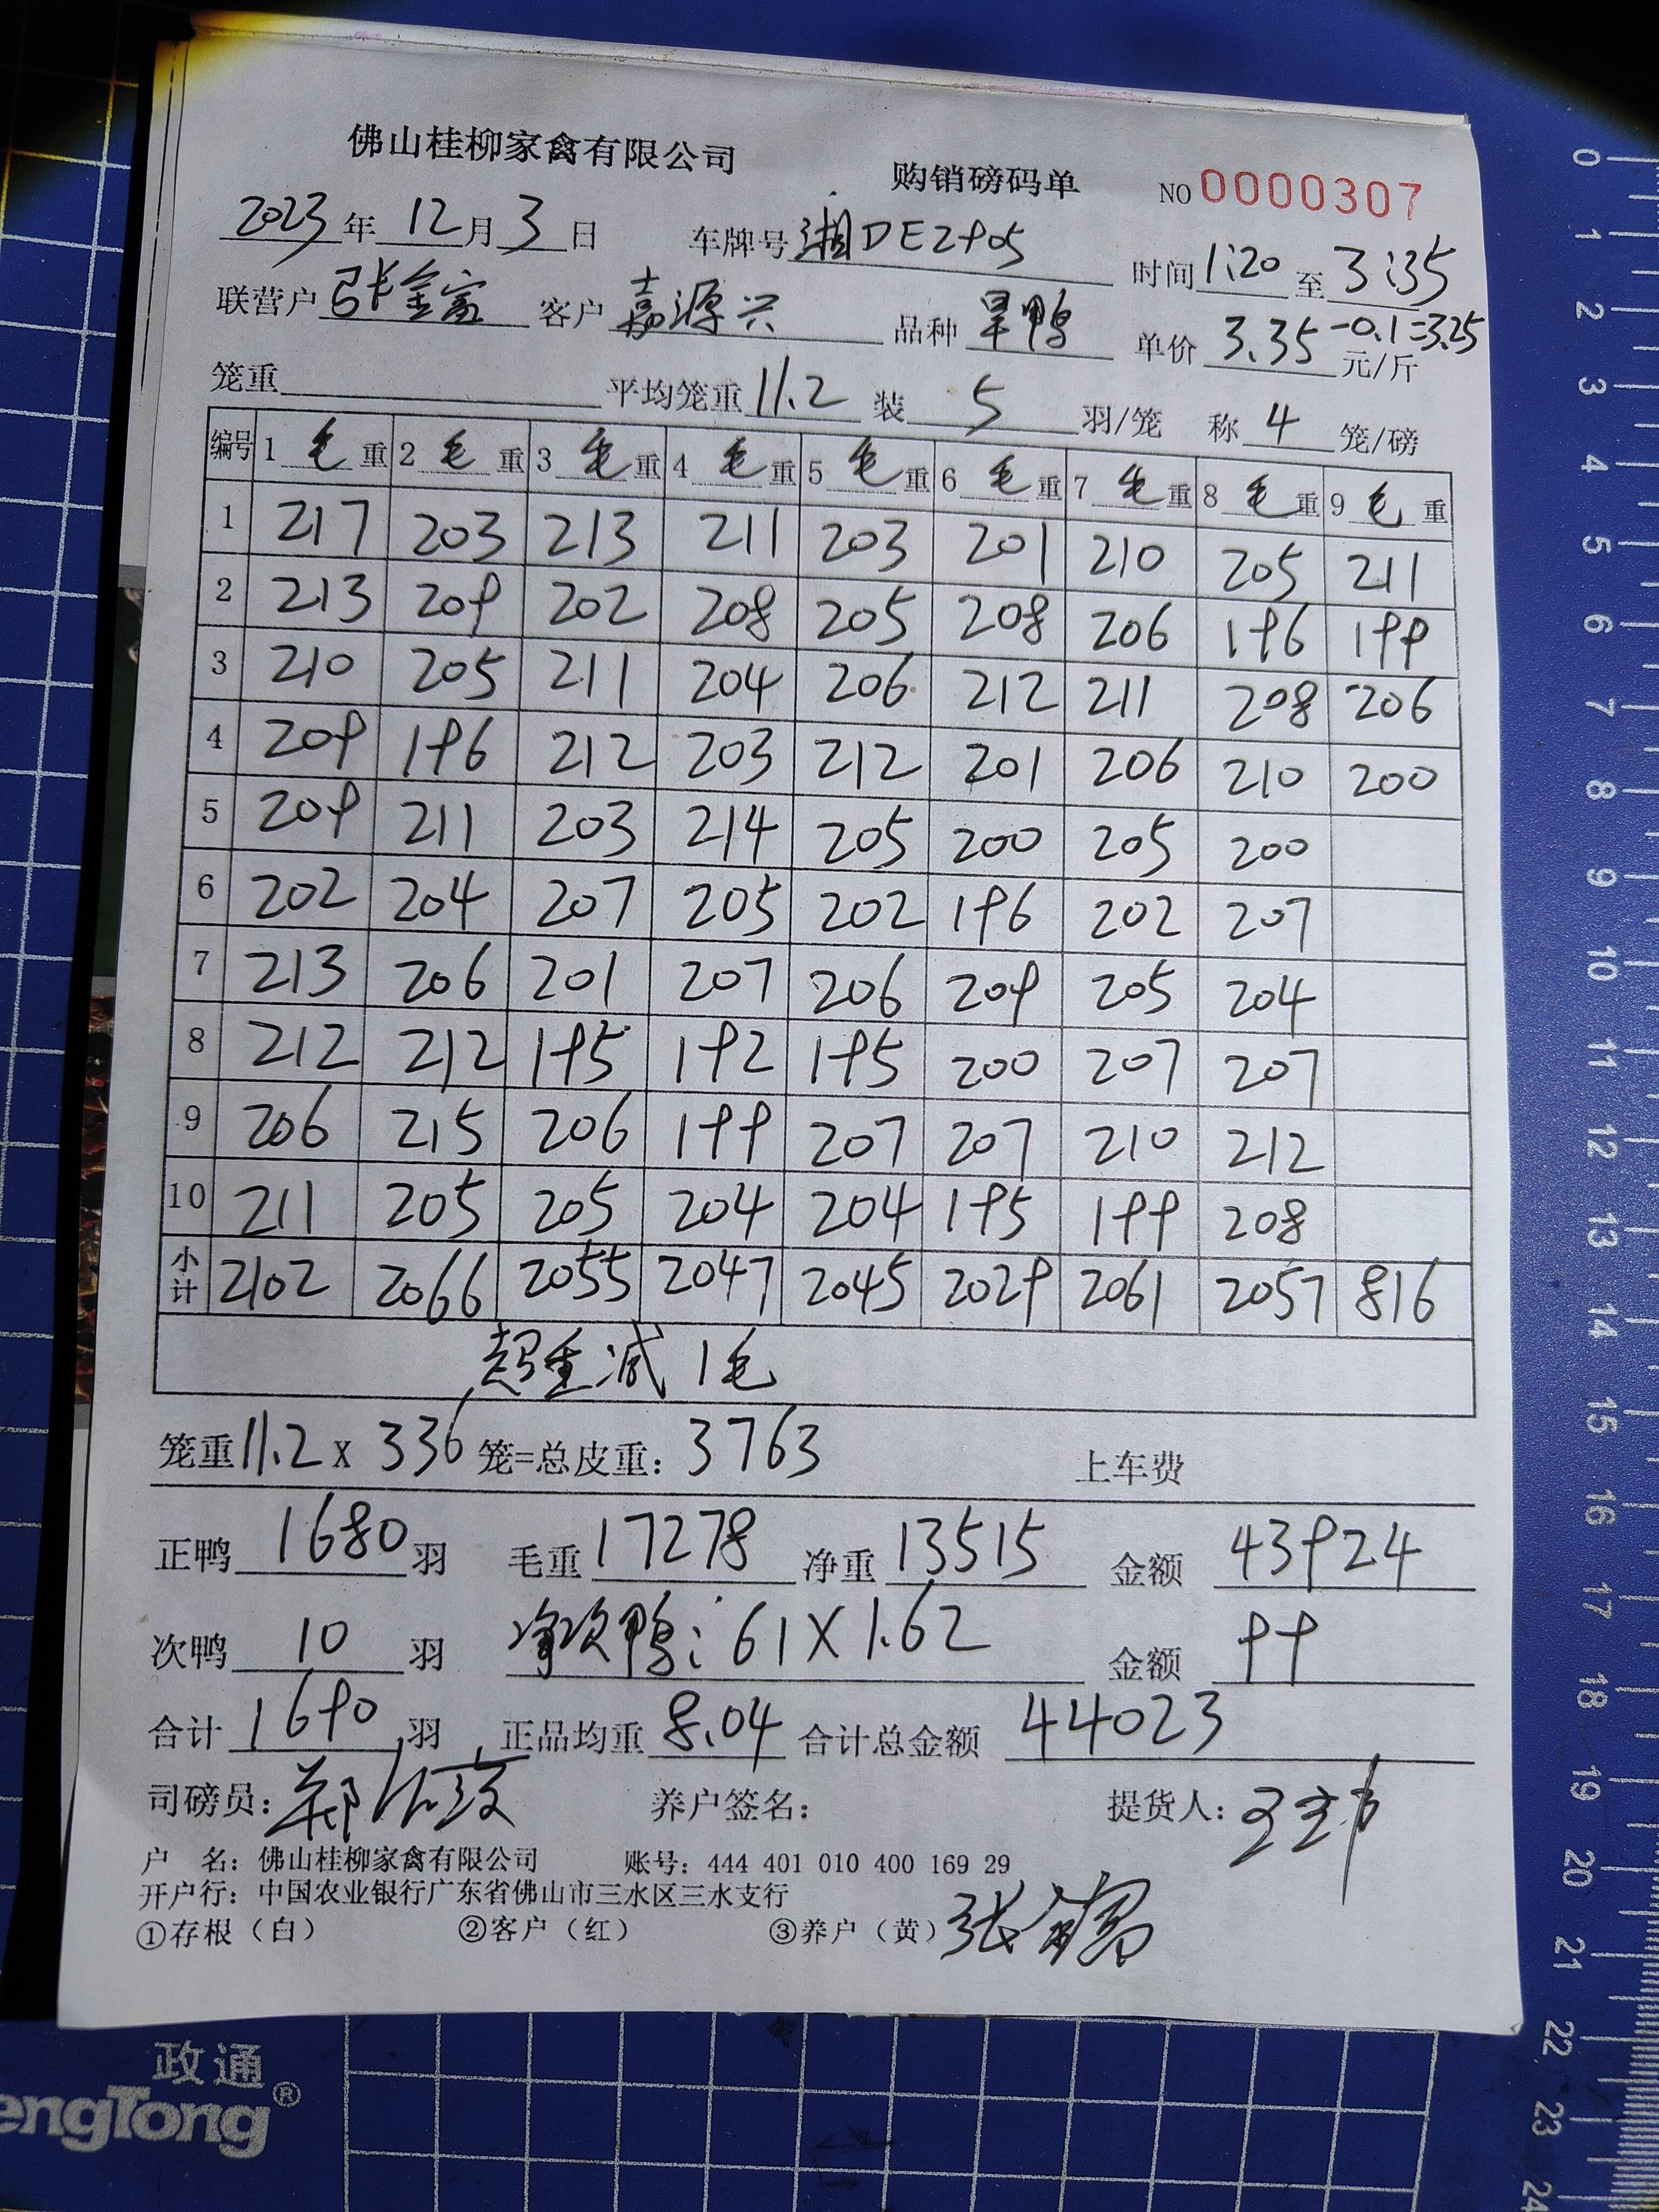 佛山桂柳家禽有限公司 购销磅码单 NO 0000307
2023年12月3日 车牌号湘DE2905 时间1:20至3:35
联营户张金富 客户嘉源兴 品种旱鸭 单价3.35-0.1=3.25元/斤
笼重 平均笼重11.2 装5羽/笼 称4笼/磅
编号 1毛重 2毛重 3毛重 4毛重 5毛重 6毛重 7毛重 8毛重 9毛重
1 217 203 213 211 203 201 210 205 211
2 213 209 202 208 205 208 206 196 199
3 210 205 211 204 206 212 211 208 206
4 209 196 212 203 212 201 206 210 200
5 209 211 203 214 205 200 205 200
6 202 204 207 205 202 196 202 207
7 213 206 201 207 206 209 205 204
8 212 212 195 192 195 200 207 207
9 206 215 206 199 207 207 210 212
10 211 205 205 204 204 195 199 208
小计 2102 2066 2055 2047 2045 2029 2061 2057 816
超重减1毛
笼重11.2x336笼=总皮重：3763 上车费
正鸭1680羽 毛重17278 净重13515 金额43924
次鸭10羽 净次鸭：61X1.62 金额99
合计1690羽 正品均重8.04 合计总金额44023
司磅员： 养户签名： 提货人：
户 名：佛山桂柳家禽有限公司 账号：444 401 010 400 169 29
开户行：中国农业银行广东省佛山市三水区三水支行
①存根（白） ②客户（红） ③养户（黄）张金富
0 1 2 3 4 5 6 7 8 9 10 11 12 13 14 15 16 17 18 19 20 21 22 23 24
政通
engTong®